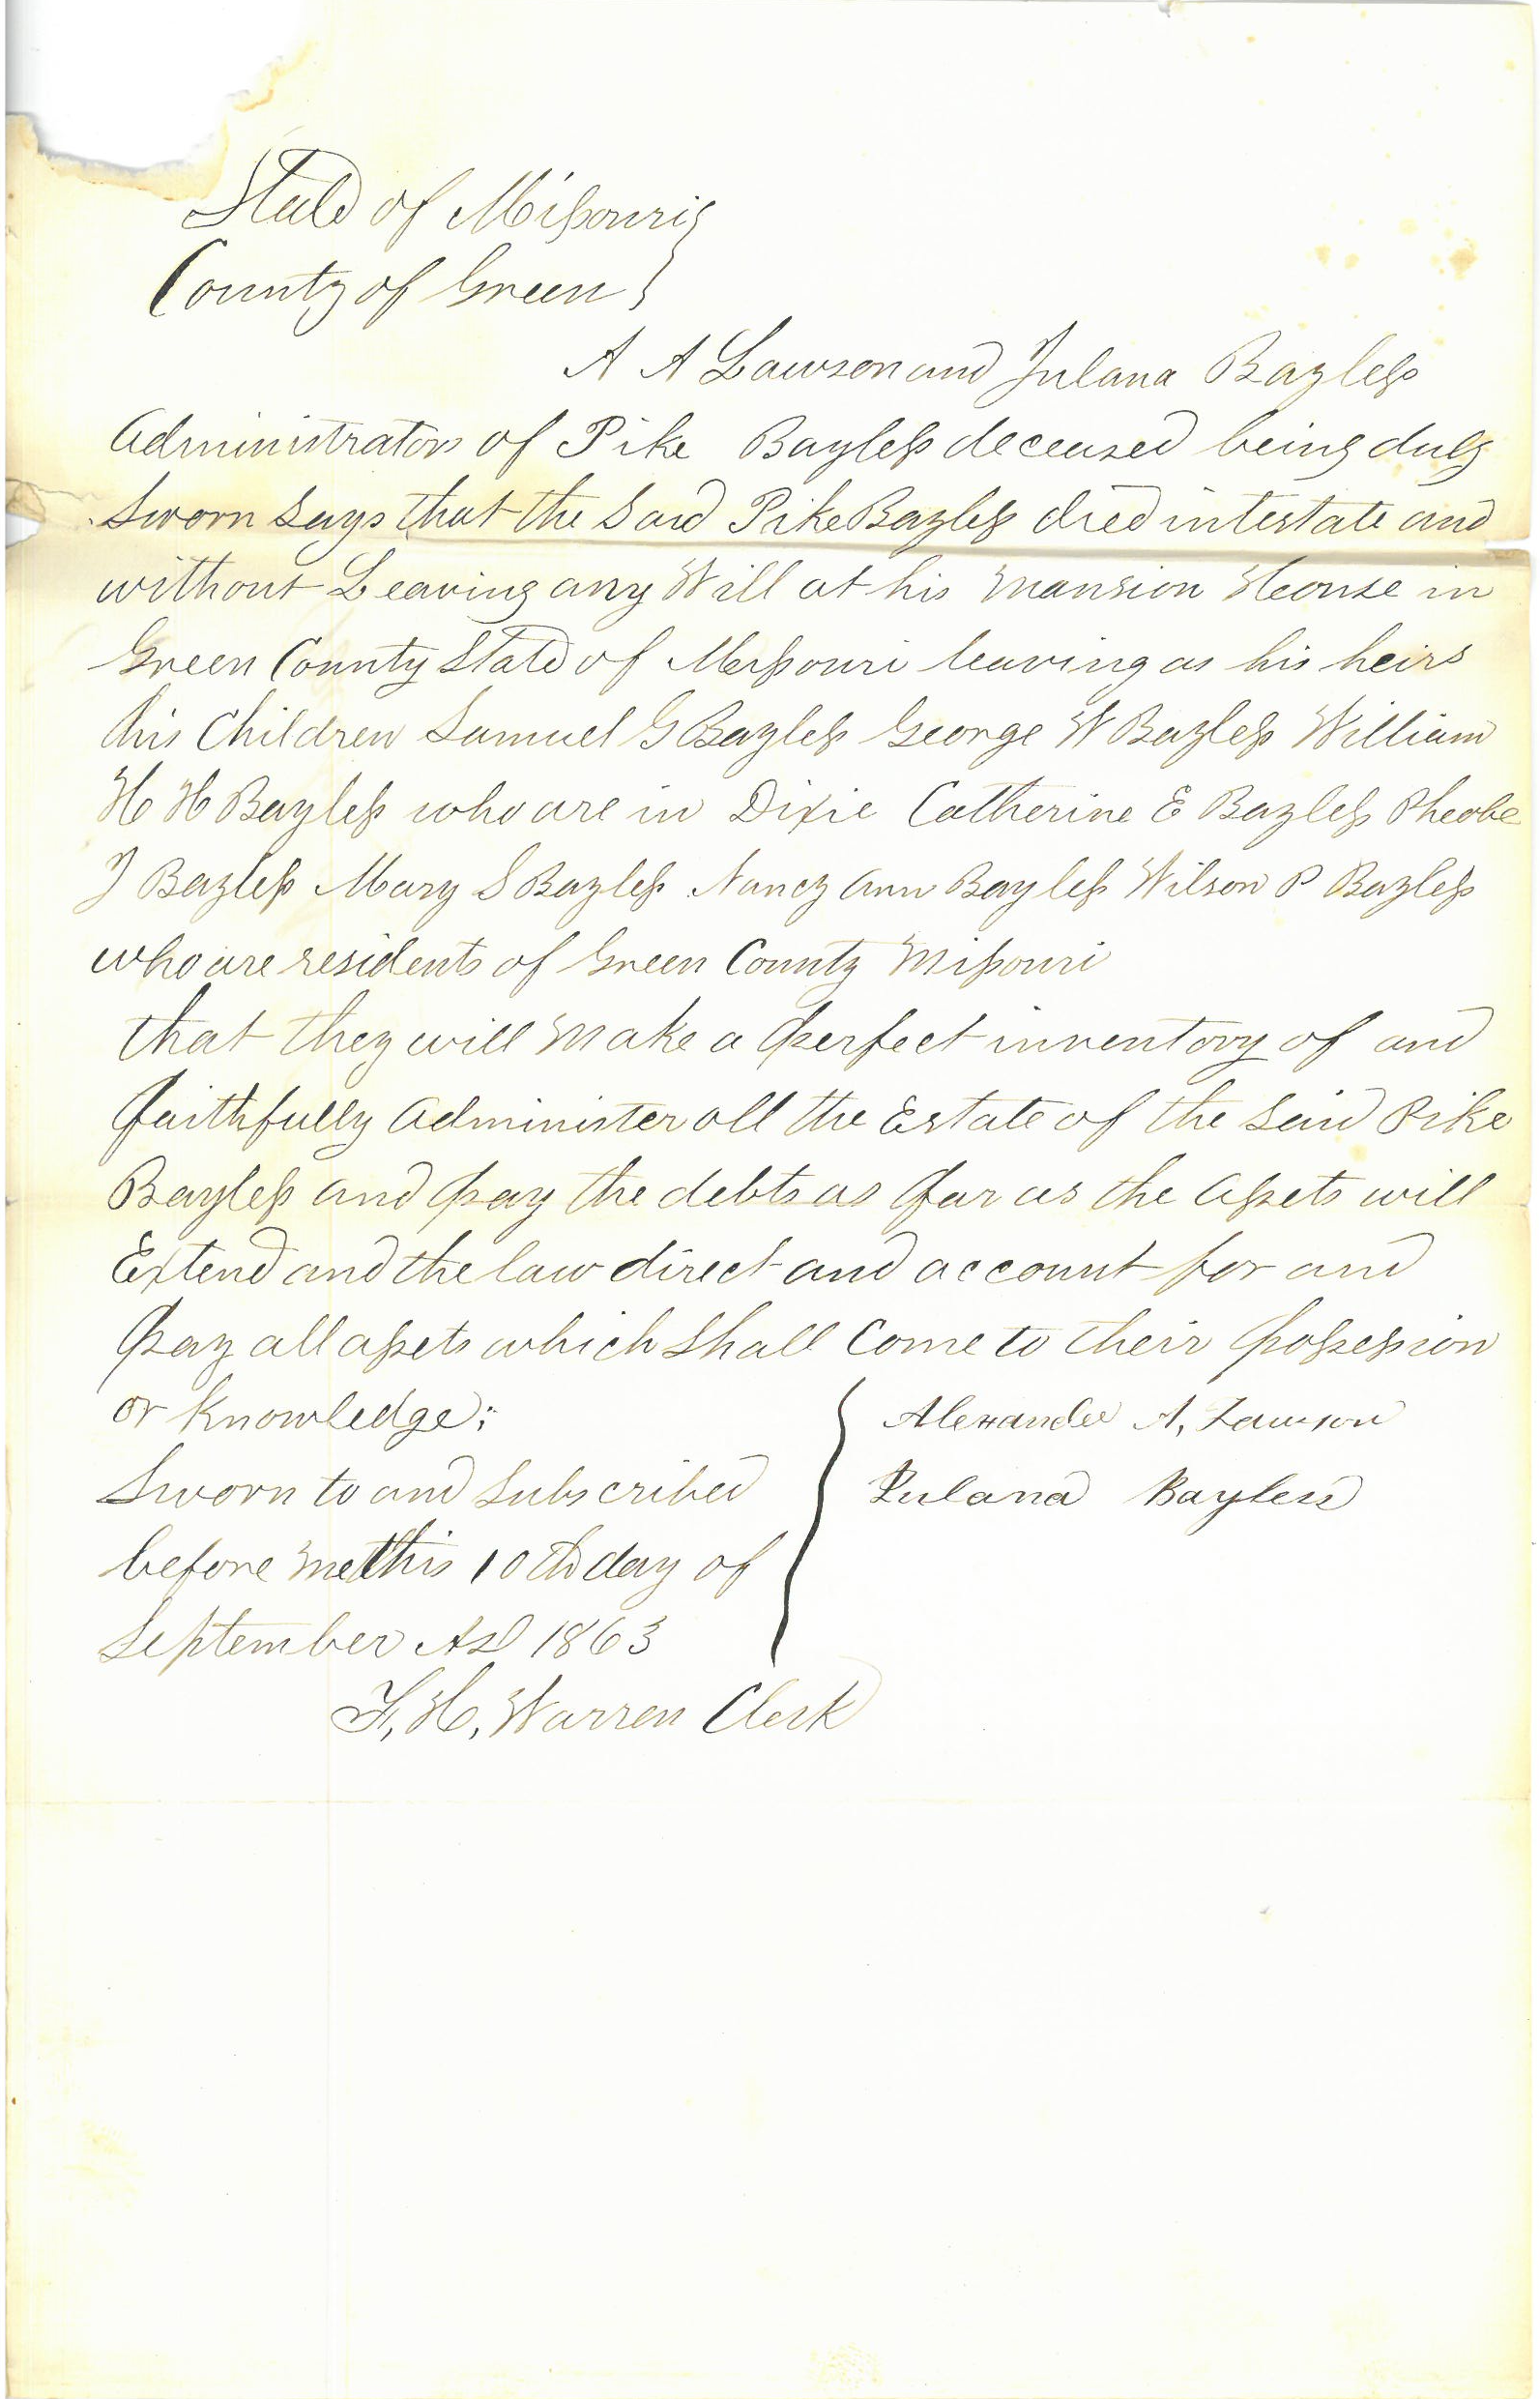 State of Missouri }
County of Green }
A A Lawson and Julana Bayless
Administrators of Pike Bayless deceased being duly
Sworn Says that the Said Pike Bayless died intestate and
without Leaving any Will at his Mansion House in
Green County State of Missouri leaving as his heirs
his Children Samuel G Bayless George W Bayless William
H H Bayless who are in Dixie Catherine E Bayless Pheobe
J Bayless Mary S Bayless Nancy Ann Bayless Wilson P Bayless
who are residents of Green County Missouri
that they will Make a perfect inventory of and
faithfully Administer all the Estate of the Said Pike
Bayless and pay the debts as far as the Assets will
Extend and the law direct and account for and
pay all assets which Shall Come to their possession
or Knowledge:
Alexander A. Lawson
Sworn to and Subscribed
Julana Bayless
before me this 10th day of
September AD 1863
F. H. Warren Clerk